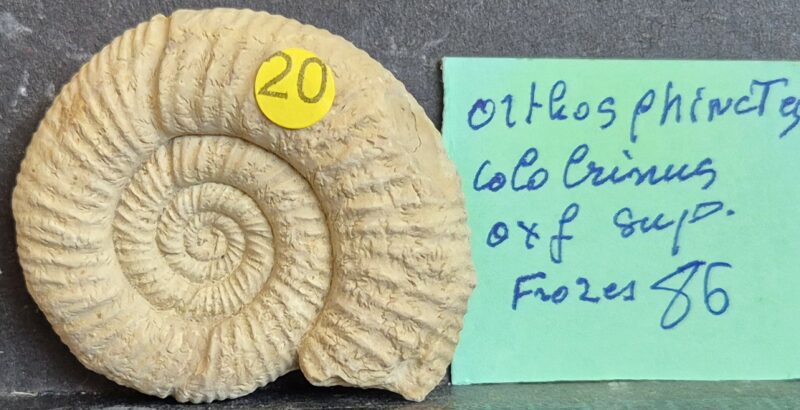 20
Orthosphinctes
colobrinus
oxf sup.
Frozes 86